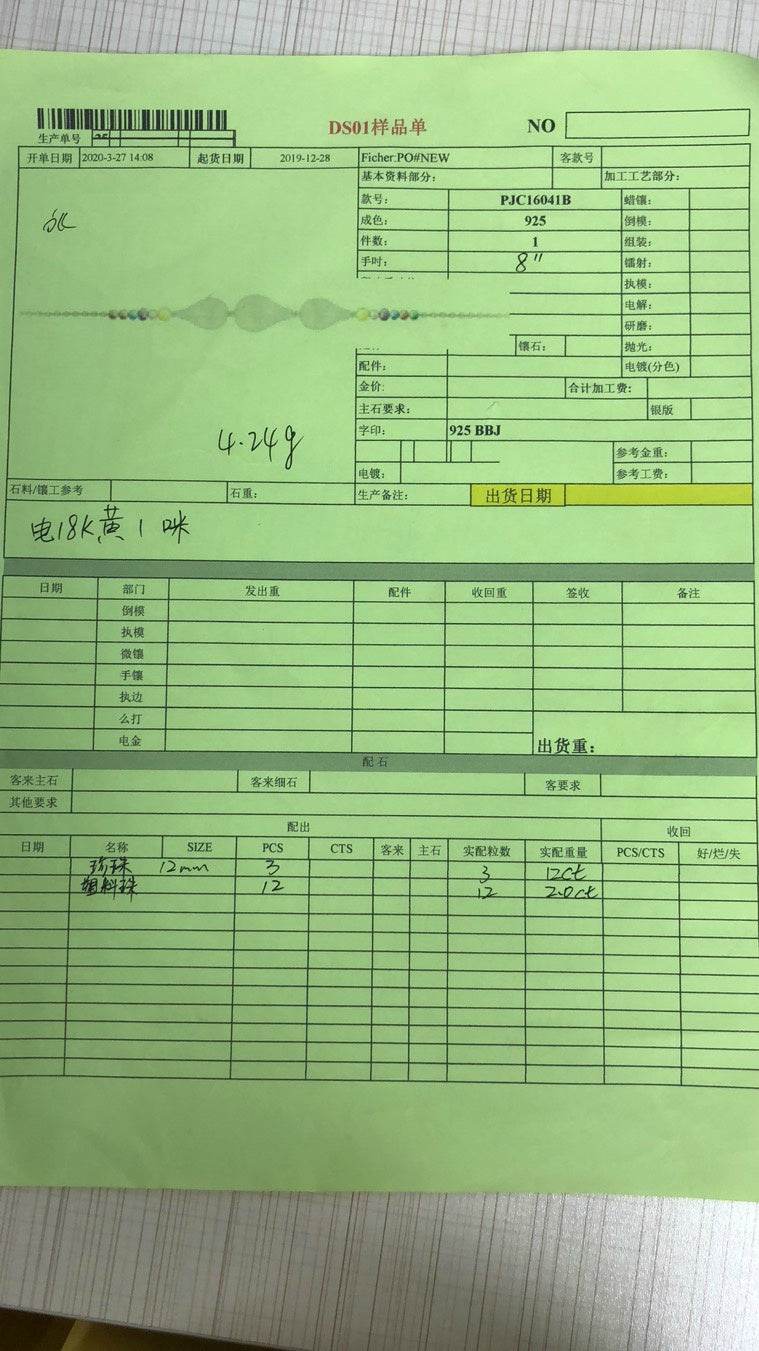 DS01样品单
NO
生产单号
开单日期 2020-3-27 14:08 起货日期 2019-12-28 Ficher:PO#NEW 客款号
基本资料部分: 加工工艺部分:
款号: PJC16041B 蜡镶:
成色: 925 倒模:
件数: 1 组装:
手吋: 8" 镭射:
执模:
电解:
研磨:
镶石: 抛光:
配件: 电镀(分色)
金价: 合计加工费:
主石要求: 银版
4.24g
字印: 925 BBJ
参考金重:
电镀: 参考工费:
石料/镶工参考 石重: 生产备注: 出货日期
电18K黄1咪
日期 部门 发出重 配件 收回重 签收 备注
倒模
执模
微镶
手镶
执边
么打
电金 出货重:
配石
客来主石 客来细石 客要求
其他要求
配出 收回
日期 名称 SIZE PCS CTS 客来 主石 实配粒数 实配重量 PCS/CTS 好/烂/失
珍珠 12mm 3 3 12ct
塑料珠 12 12 2.0ct